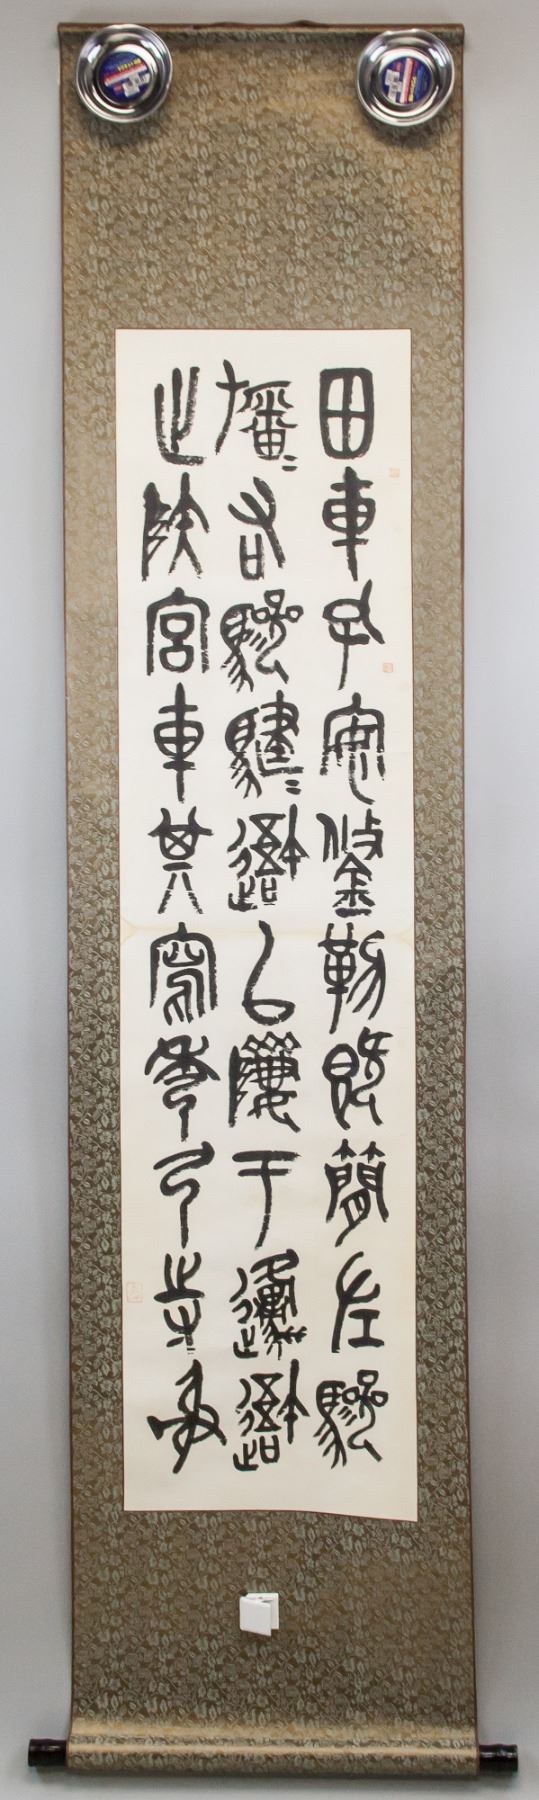 田車孔安鋚勒既簡左驂
旛〻右驂騝〻䢩以隮于邍䢩
止陕宮車其寫秀弓寺射